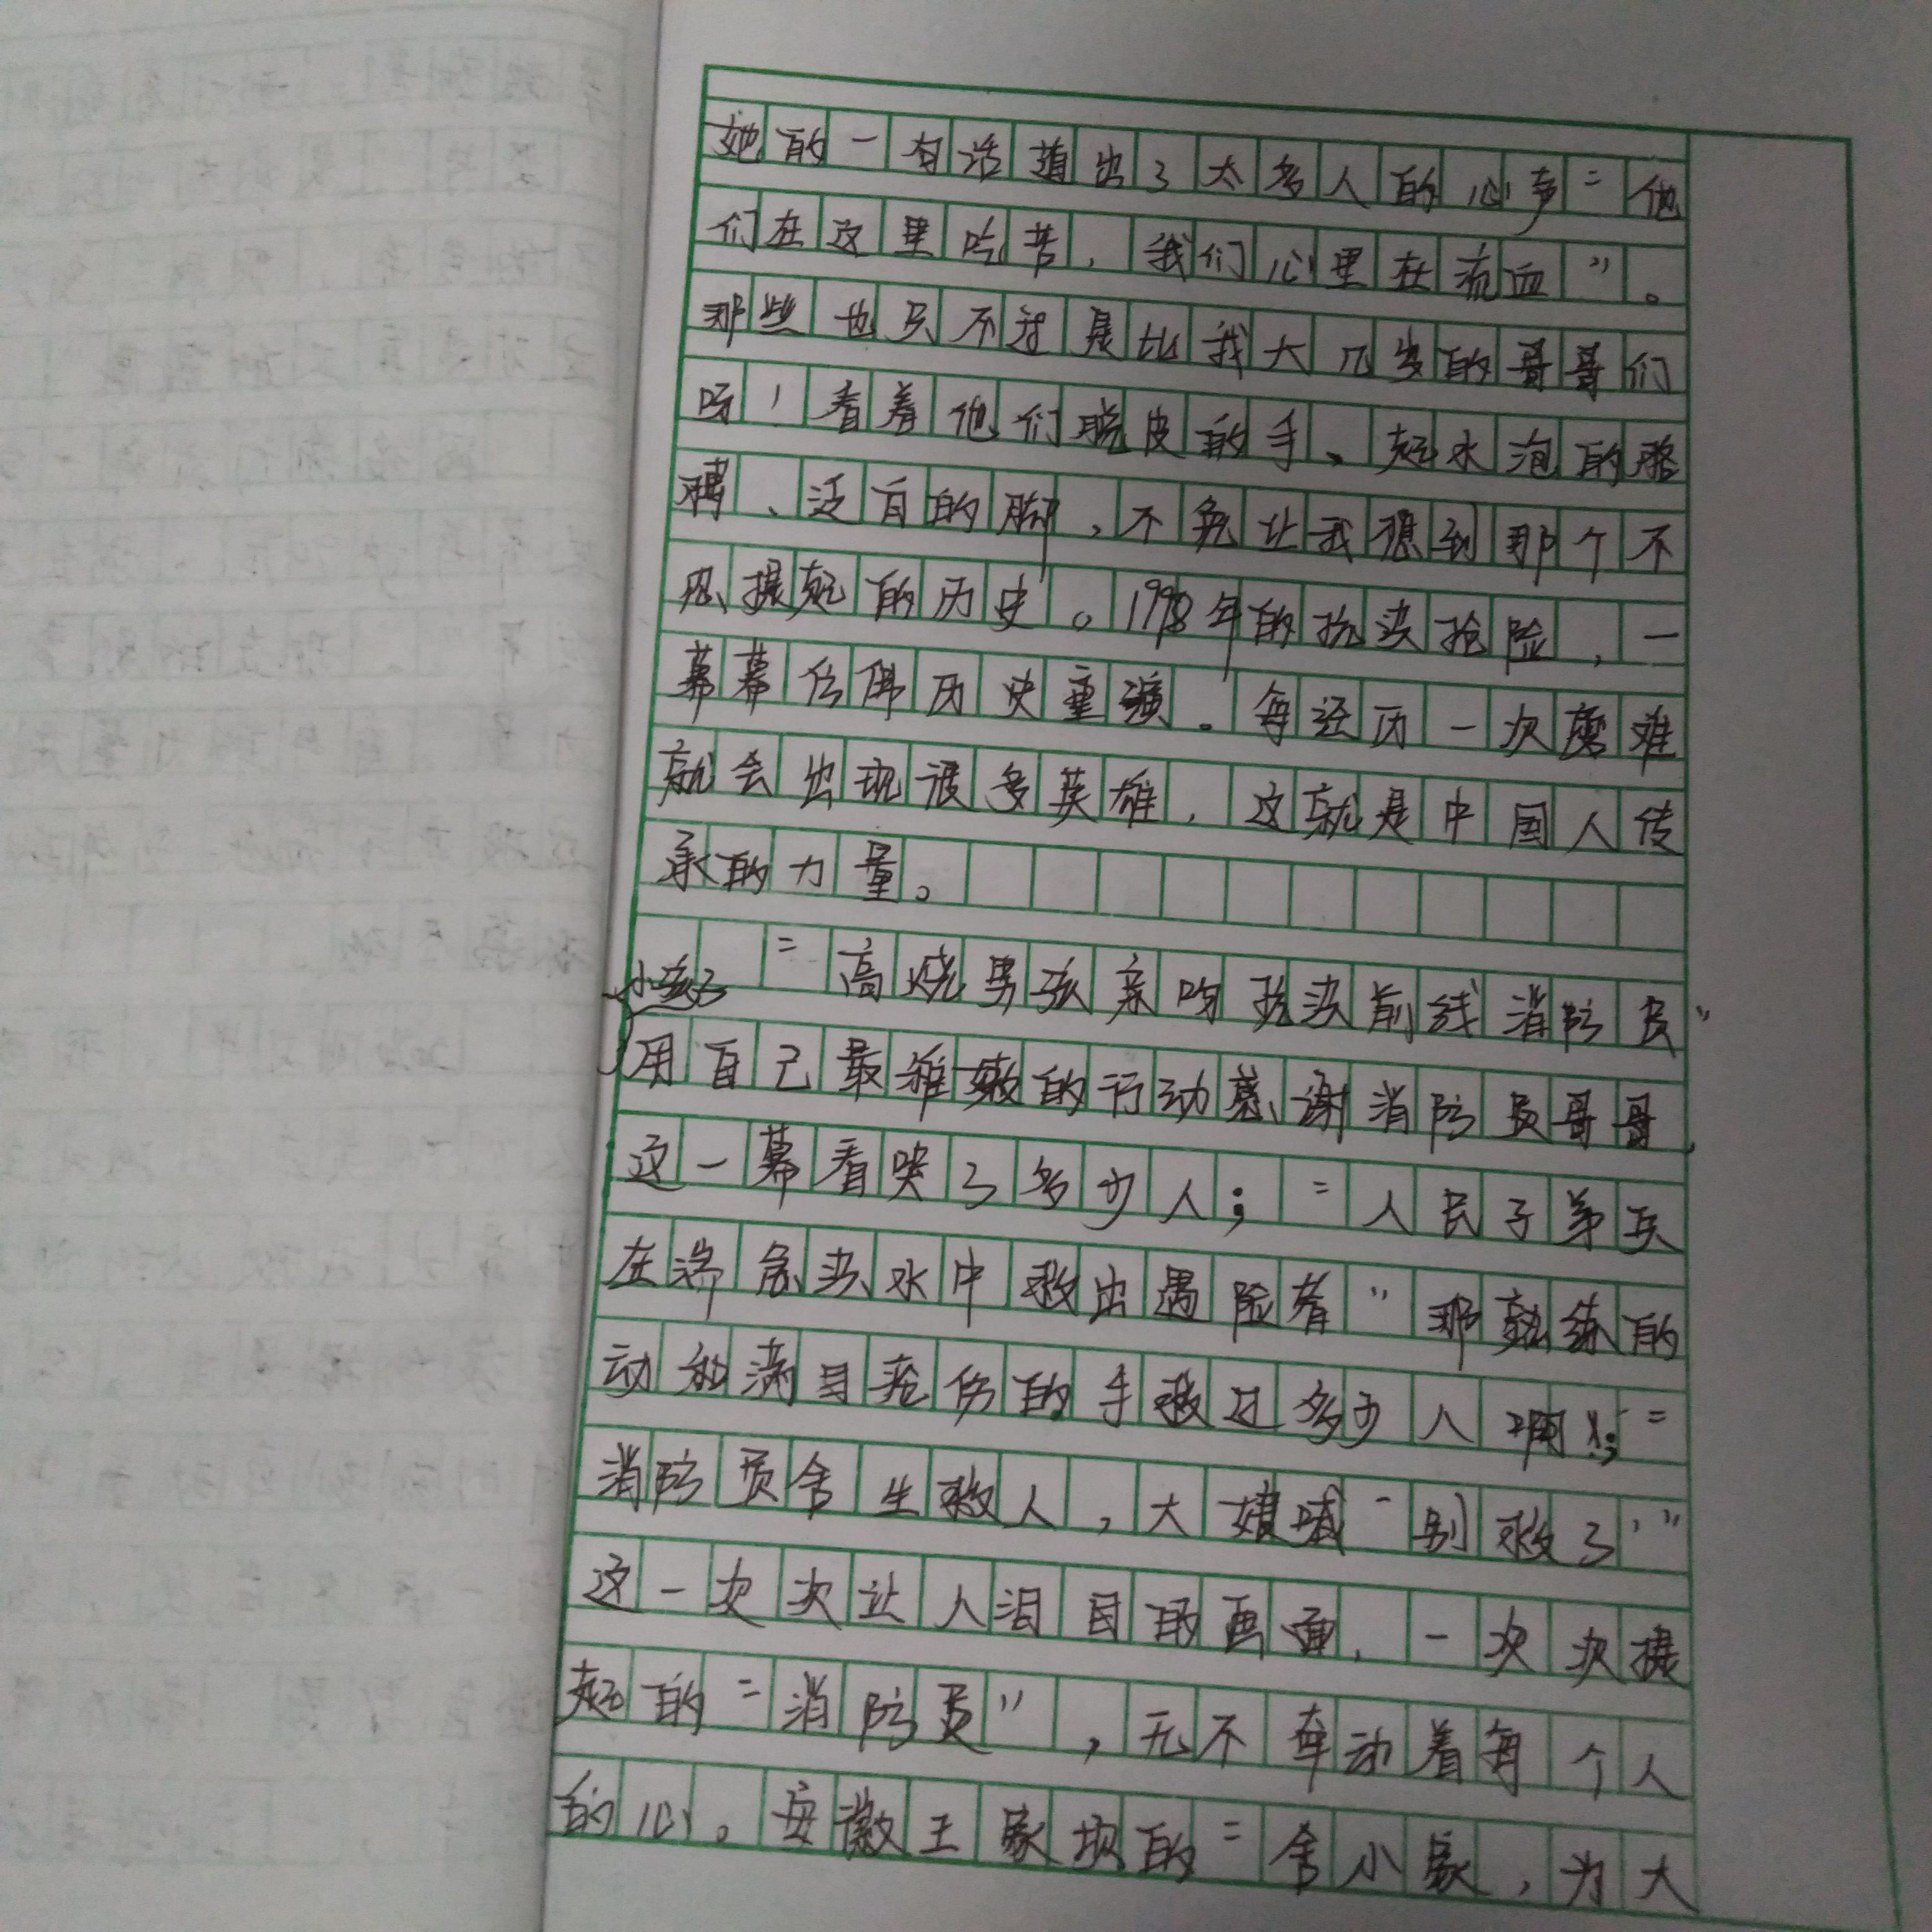 她的一句话道出了太多人的心声“他
们在这里吃苦，我们心里在流血”。
那些也只不过是比我大几岁的哥哥们
呀！看着他们脱皮的手、起水泡的胳
膊、泛白的脚，不免让我想到那个不
忍提起的历史。1998年的抗洪抢险，一
幕幕仿佛历史重演。每经历一次磨难
就会出现很多英雄，这就是中国人传
承的力量。
“高烧男孩亲吻抗洪前线消防员”
小孩子
用自己最稚嫩的行动感谢消防员哥哥，
这一幕看哭了多少人；“人民子弟兵
在湍急洪水中救出遇险者”那熟练的
动和满目疮伤的手救过多少人啊；“
消防员舍生救人，大娘喊‘别救了’”
这一次次让人泪目的画面，一次次提
起的“消防员”，无不牵动着每个人
的心。安徽王家坝的“舍小家，为大